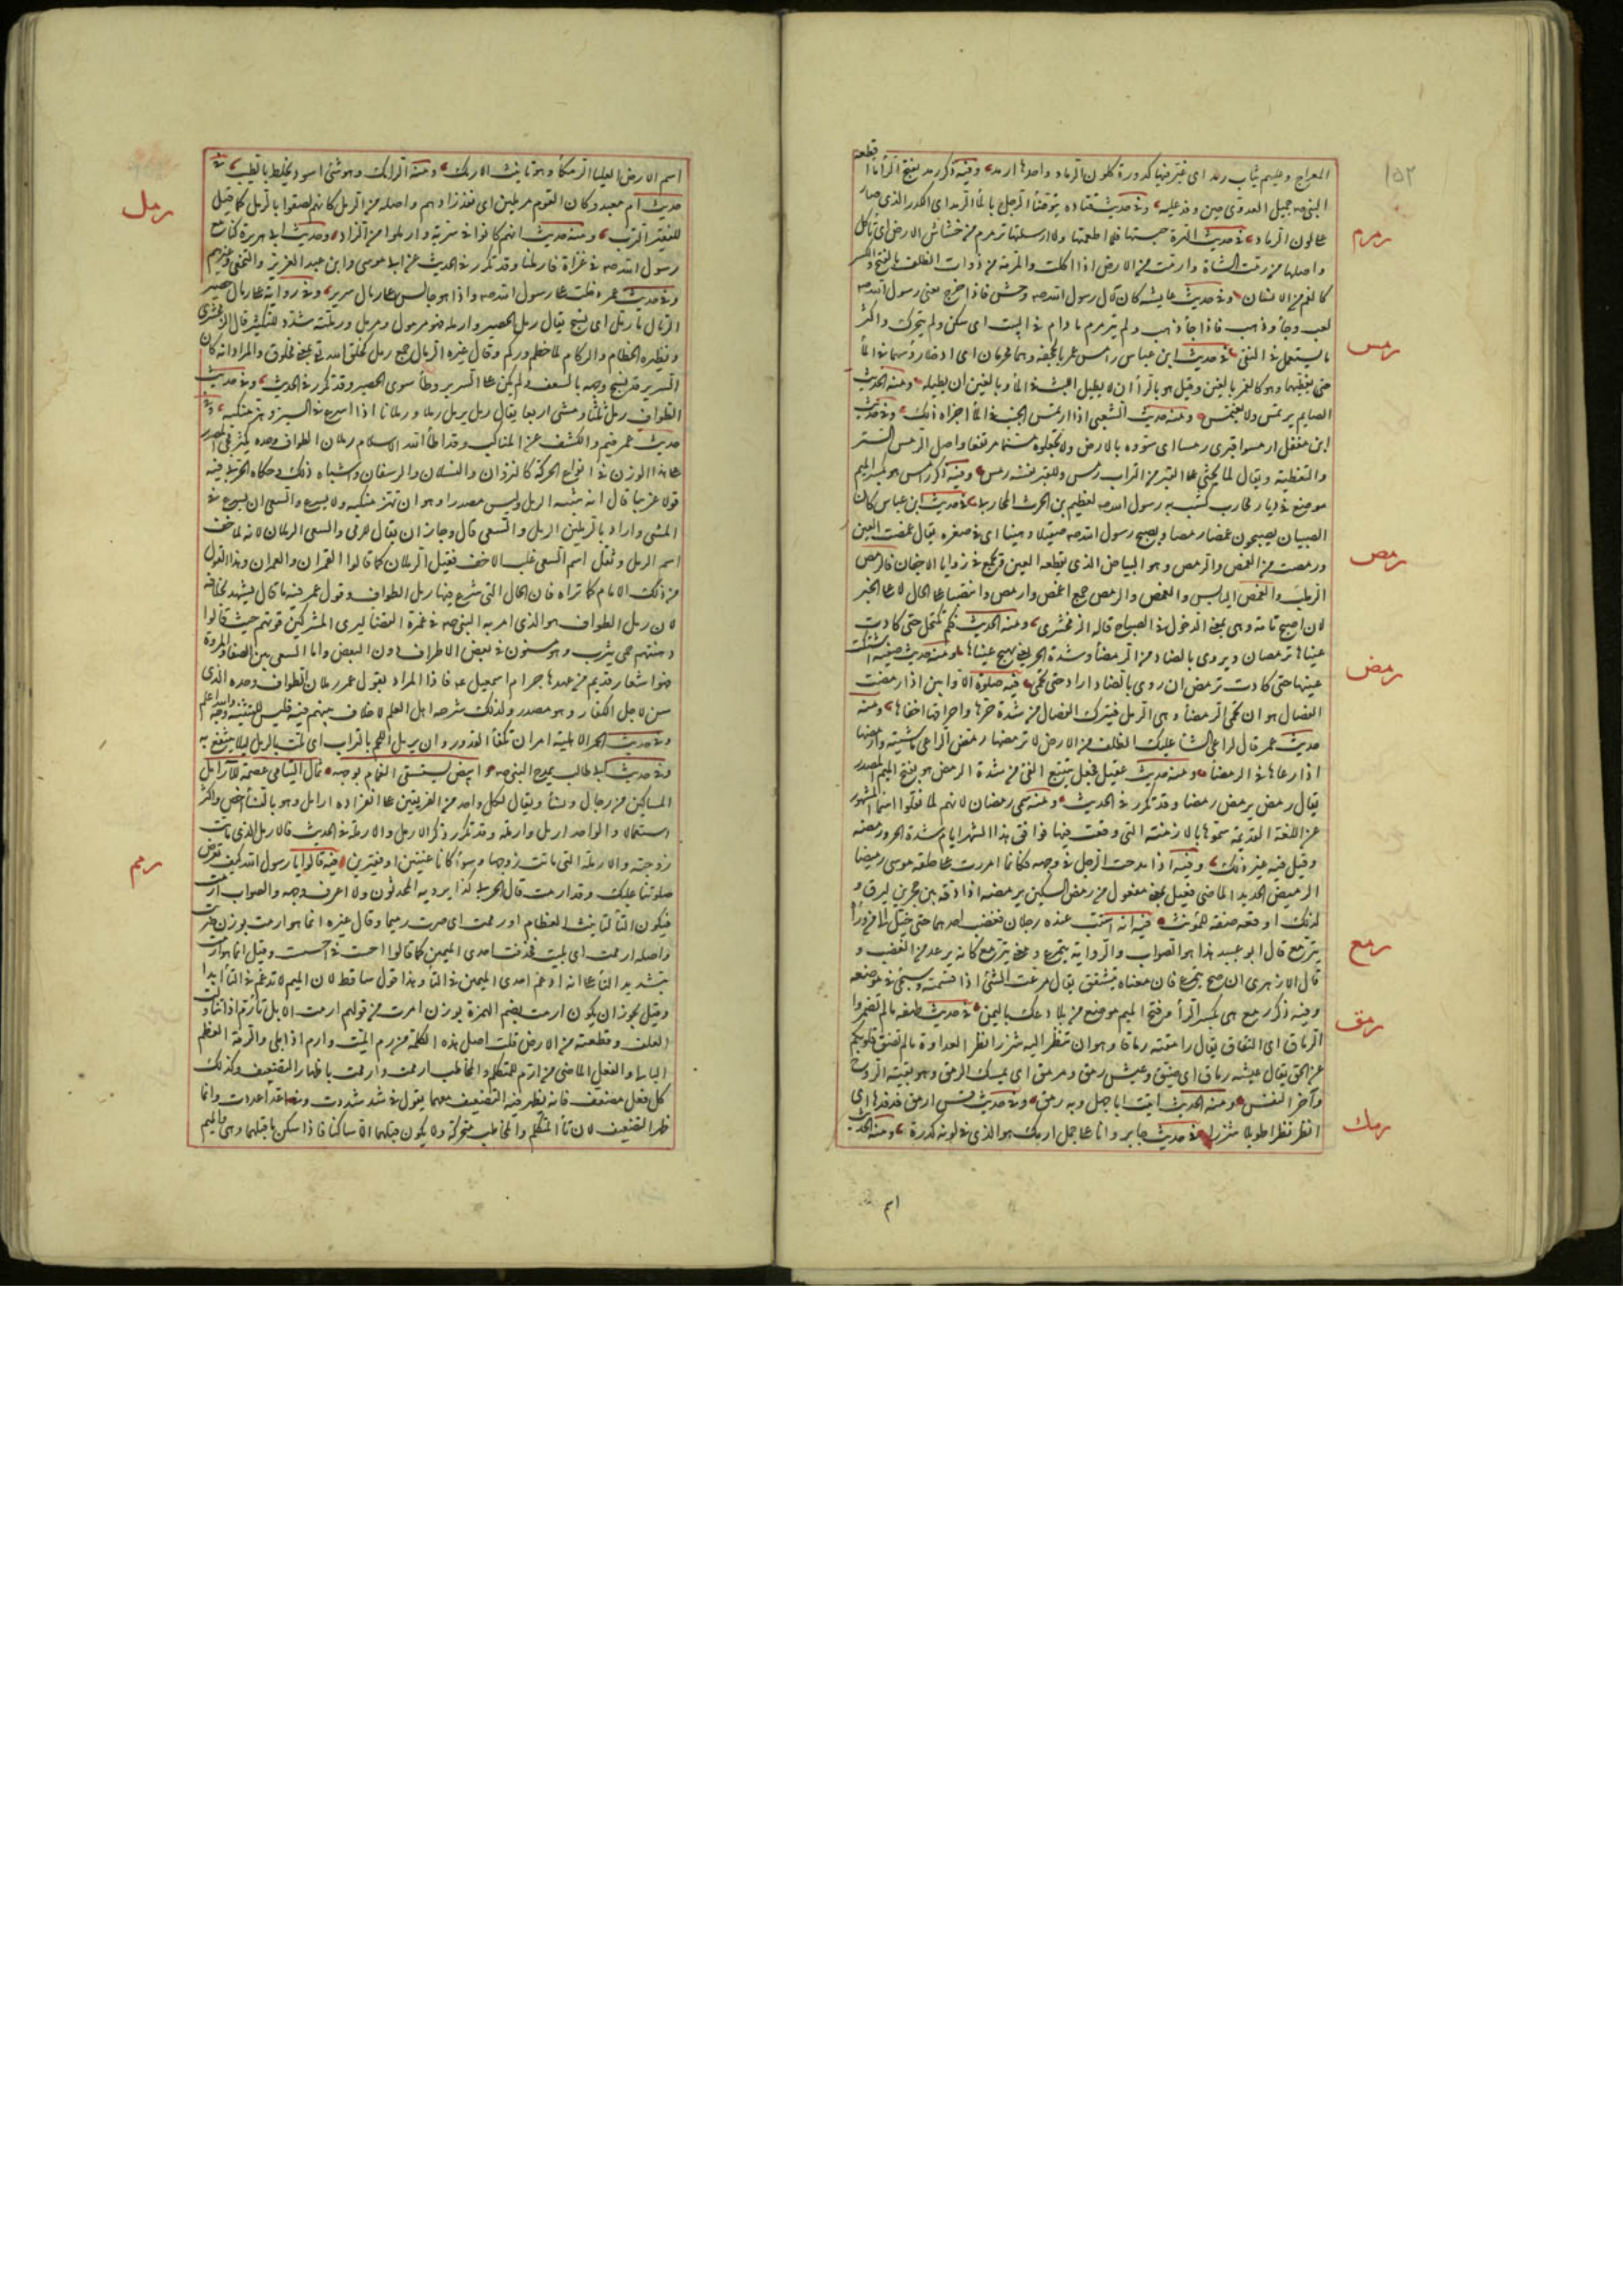 ١٥٢
المعراج وعليهم ثياب رمد اى غبر فيها كدورة كلون الرماد واحدها ارمد وفيه ذكر رمد بفتح الراء ماء اقطعه
النبى صه جميل العدوى حين وفد عليه وفى حديث قتاده يتوضأ الرجل بالماء الرمد اى الكدر الذى صار
على لون الرماد فى حديث الهرة حبستها فلا اطعمتها ولا ارسلتها ترمرم من خشاش الارض اى تأكل
رمرم
واصلها من رمت الشاة وارتمت من الارض اذا اكلت والمرمة من ذوات الظلف بالفتح والكسر
كالفم من الانسان وفى حديث عايشه كان لآل رسول الله صه وحش فاذا خرج يعنى رسول الله صه
لعب وجاء وذهب فاذا جاء ذهب ولم يترمرم ما دام فى البيت اى سكن ولم يتحرك واكثر
ما يستعمل فى النفى فى حديث ابن عباس رامس عمر بالجحفه وهما محرمان اى ادخلا رؤسهما فى الماء
رمس
حتى يغطيهما وهو كالغمر بالغين وقيل هو بالراء ان لا يطيل اللبث فى الماء وبالغين ان يطيله ومنه الحديث
الصايم يرتمس ولا يغتمس ومنه حديث الشعبى اذا ارتمس الجنب فى الماء اجزاه ذلك وفى حديث
ابن مغفل ارمسوا قبرى رمسا اى سووه بالارض ولا تجعلوه مسنما مرتفعا واصل الرمس الستر
والتغطية ويقال لما يحثى على القبر من التراب رمس وللقبر نفسه رمس وفيه ذكر رامس هو بكسر الميم
موضع فى ديار محارب كتب به رسول الله صه لعظيم بن الحرث المحاربى فى حديث ابن عباس كان
الصبيان يصبحون غمصا رمصا ويصبح رسول الله صه صقيلا دهينا اى فى صغره يقال غمصت العين
ورمصت من الغمص والرمص وهو البياض الذى تقطعه العين ويجتمع فى زوايا الاجفان فالرمص
رمص
الرطب والغمص اليابس والغمص والرمص جمع اغمص وارمص وانتصبا على الحال لا على الخبر
لان اصبح تامه وهى بمعنى الدخول فى الصباح قاله الزمخشرى ومنه الحديث فلم تكتحل حتى كادت
عيناها ترمصان ويروى بالضاد من الرمضاء وشدة الحر يعنى تهيج عيناها ومنه حديث صفيه اشتكت
عينها حتى كادت ترمض ان روى بالضاد اراد حتى تحمى فيه صلوة الاوابين اذا رمضت
رمض
الفصال هو ان تحمى الرمضاء وهى الرمل فيترك الفصال من شدة حرها واحراقها اخفافها ومنه
حديث عمر قال لراعى الشاء عليك الظلف من الارض لا ترمضها رمض الراعى ماشيته وارمضها
اذا رعاها فى الرمضاء ومنه حديث عقيل فجعل يتتبع الفئ من شدة الرمض هو بفتح الميم المصدر
يقال رمض يرمض رمضا وقد تكرر فى الحديث ومنه سمى رمضان لانهم لما نقلوا اسماء الشهور
عن اللغة القديمه سموها بالازمنه التى وقعت فيها فوافق هذا الشهر ايام شدة الحر ورمضه
وقيل فيه غير ذلك وفيه اذا مدحت الرجل فى وجهه فكانما امررت على حلقه موسى رميضا
الرميض الحديد الماضى فعيل بمعنى مفعول من رمض السكين يرمضه اذا دقه بين حجرين ليرق و
لذلك اوقعه صفة للمؤنث فيه انه استب عنده رجلان فغضب احدهما حتى خيل الى من رآه
يترمع قال ابو عبيد هذا هو الصواب والروايه يتمزع ومعنى يترمع كانه يرعد من الغضب و
رمع
قال الازهرى ان صح يتمزع فان معناه يتشقق يقال مزعت الشئ اذا قسمته وسيجئ فى موضعه
وفيه ذكر رمع هى بكسر الراء وفتح الميم موضع من بلاد عك باليمن فى حديث طهفه ما لم تضمروا
رمق
الرماق اى النفاق يقال رامقته رماقا وهو ان تنظر اليه شزرا نظر العداوة ما لم تضق قلوبكم
عن الحق يقال عيشه رماق اى ضيق وعيش رمق ومرمق اى يمسك الرمق وهو بقية الروح
وآخر النفس ومنه الحديث اتيت ابا جهل وبه رمق وفى حديث قس ارمق فدفدها اى
انظر نظرا طويلا شزرا فى حديث جابر وانا على جمل ارمك هو الذى فى لونه كدرة ومنه الحديث
رمك
اسم
اسم الارض العليا الرمكاء وهو تانيث الارمك ومنه الرامك وهو شئ اسود يخلط بالطيب فى
حديث ام معبد وكان القوم مرملين اى نفد زادهم واصله من الرمل كانهم لصقوا بالرمل كما قيل
رمل
للفقير الترب ومنه حديث انهم كانوا فى سرية وارملوا من الزاد وحديث ابى هريرة كنا مع
رسول الله صه فى غزاة فارملنا وقد تكرر فى الحديث عن ابى موسى وابن عبد العزيز والنخعى وغيرهم
وفى حديث عمر دخلت على رسول الله صه واذا هو جالس على رمال سرير وفى رواية على رمال حصير
الرمال ما رمل اى نسج يقال رمل الحصير وارمله فهو مرمول ومرمل ورملته شدد للتكثير قال الزمخشرى
ونظيره الحطام والركام لما حطم وركم وقال غيره الرمال جمع رمل كخلق الله تعالى بمعنى مخلوق والمراد انه كان
السرير قد نسج وجهه بالسعف ولم يكن على السرير وطاء سوى الحصير وقد تكرر فى الحديث وفى حديث
الطواف رمل ثلثا ومشى اربعا يقال رمل يرمل رملا ورملانا اذا اسرع فى السير وهز منكبيه وفى
حديث عمر فيم الرملان والكشف عن المناكب وقد اطأ الله الاسلام رملان الطواف وحده يكثر مجئ المصدر
على هذا الوزن فى انواع الحركة كالنزوان والنسلان والرسفان واشباه ذلك وحكى الحربى فيه
قولا غريبا قال انه تثنيه الرمل وليس مصدرا وهو ان تهز منكبيه ولا يسرع والسعى ان يسرع فى
المشى واراد بالرملين الرمل والسعى قال وجاز ان يقال للرمل والسعى الرملان لانه لما خف
اسم الرمل وثقل اسم السعى غلب الاخف فقيل الرملان كما قالوا القمران والعمران وهذا القول
من ذلك الامام كما تراه فان الحال التى شرع فيها رمل الطواف وقول عمر فيه ما قال يشهد بخلافه
لان رمل الطواف هو الذى امر به النبى صه فى عمرة القضاء ليرى المشركين قوتهم حيث قالوا
وهنتهم حمى يثرب وهو مسنون فى بعض الاطراف دون البعض واما السعى بين الصفا والمروة
فهو شعار قديم من عهد هاجر ام اسمعيل عه فاذا المراد بقول عمر رملان الطواف وحده الذى
سن لاجل الكفار وهو مصدر ولذلك شرحه اهل العلم لا خلاف بينهم فيه فليس للتثنيه وجه والله اعلم
وفى حديث الحمر الاهليه امر ان تكفأ القدور وان يرمل اللحم بالتراب اى يلت بالرمل ليلا ينتفع به
وفى حديث ابى طالب يمدح النبى صه وابيض يستسقى الغمام بوجهه ثمال اليتامى عصمة للارامل
المساكين من رجال ونساء ويقال لكل واحد من الفريقين على انفراده ارامل وهو بالنساء اخص واكثر
استعمالا والواحد ارمل وارملة وقد تكرر ذكر الارمل والارمله فى الحديث فالارمل الذى ماتت
زوجته والارملة التى مات زوجها وسواء كانا غنيين او فقيرين فيه قالوا يا رسول الله كيف تعرض
رمم
صلوتنا عليك وقد ارمت قال الحربى كذا يرويه المحدثون ولا اعرف وجهه والصواب ارمت
فيكون التاء لتانيث العظام او رممت اى صرت رميما وقال غيره انما هو ارمت بوزن ضربت
واصله ارممت اى بليت فحذفت احدى الميمين كما قالوا احست فى احسست وقيل انما هو ارمت
بتشديد التاء على انه ادغم احدى الميمين فى التاء وهذا قول ساقط لان الميم لا تدغم فى التاء ابدا
وقيل يجوز ان يكون ارمت بضم الهمزة بوزن امرت من قولهم ارمت الابل تأرم اذا تناولت
العلف وقلعته من الارض قلت اصل هذه الكلمه من رم الميت وارم اذا بلى والرمة العظم
البالى والفعل الماضى من ارم للمتكلم والمخاطب ارممت وارممت باظهار التضعيف وكذلك
كل فعل مضعف فانه يظهر فيه التضعيف معهما يقول فى شد شددت وفى اعد اعددت وانما
ظهر التضعيف لان تاء المتكلم والمخاطب متحركة ولا يكون قبلهما الا ساكنا فاذا سكن ما قبلها وهى الميم